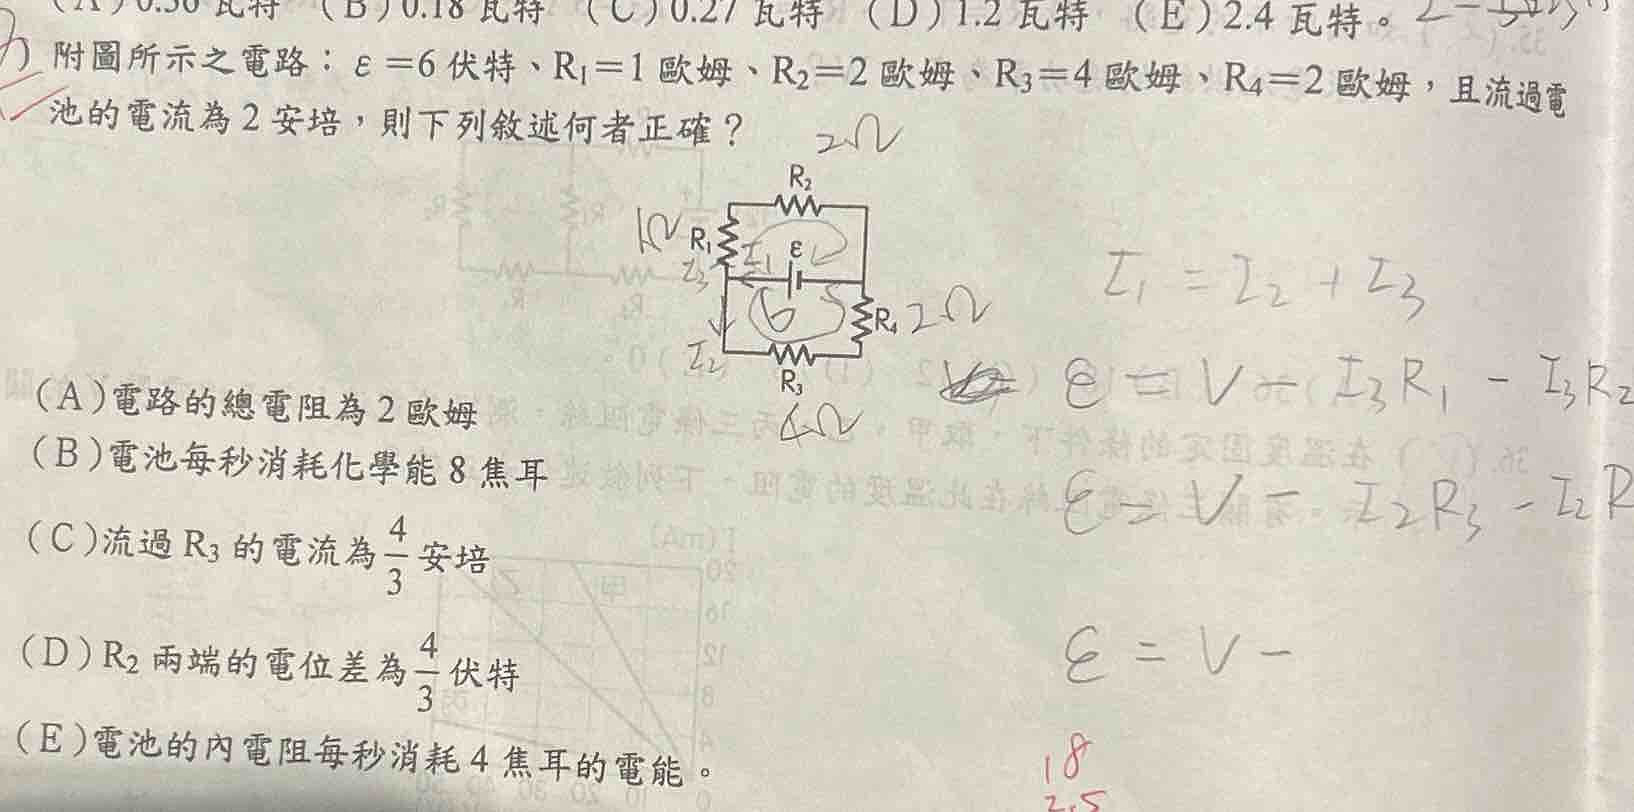 (A)0.36 瓦特 (B)0.18 瓦特 (C)0.27 瓦特 (D)1.2 瓦特 (E)2.4 瓦特。
附圖所示之電路:ε=6 伏特、R₁=1 歐姆、R₂=2 歐姆、R₃=4 歐姆、R₄=2 歐姆,且流過電
池的電流為 2 安培,則下列敘述何者正確?
2Ω
R₂
1Ω R₁ I₁ ε
I₃
R₄ 2Ω
I₂
R₃
4Ω
I₁ = I₂ + I₃
ε = V - I₃R₁ - I₃R₂
ε = V - I₂R₃ - I₂R
ε = V -
(A)電路的總電阻為 2 歐姆
(B)電池每秒消耗化學能 8 焦耳
(C)流過 R₃ 的電流為 4/3 安培
(D)R₂ 兩端的電位差為 4/3 伏特
(E)電池的內電阻每秒消耗 4 焦耳的電能。
18
2.5